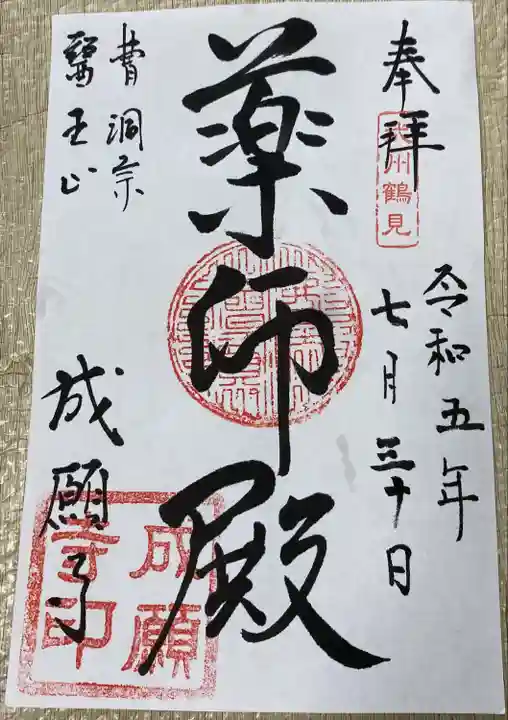 奉拝
武州鶴見
令和五年
七月三十日
薬師殿
曹洞宗
醫王山
成願寺
成願
寺印